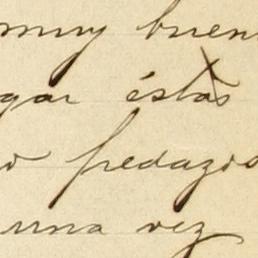 muy buen
gar éstas
o pedazos
una vez